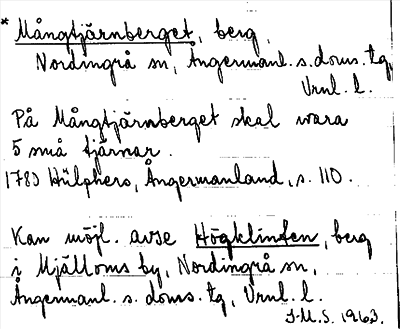 * Mångtjärnberget, berg,
Nordingrå sn, Ångermanl. s. doms. tg
Vrnl. l.
På Mångtjärnberget skal wara
5 små tjärnar.
1780 Hülphers, Ångermanland, s. 110.
Kan möjl. avse Högklinten, berg
i Mjälloms by, Nordingrå sn,
Ångermanl. s. doms. tg, Vrnl. l.
J.M.S. 1963.